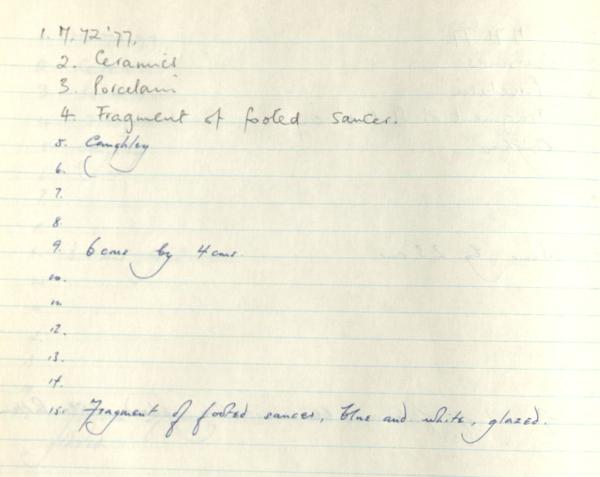 1. M. 72'77.
2. Ceramics
3. Porcelain
4. Fragment of footed saucer.
5. Caughley
6. (
7.
8.
9. 6 cms by 4 cms.
10.
11.
12.
13.
14.
15. Fragment of footed saucer, blue and white, glazed.